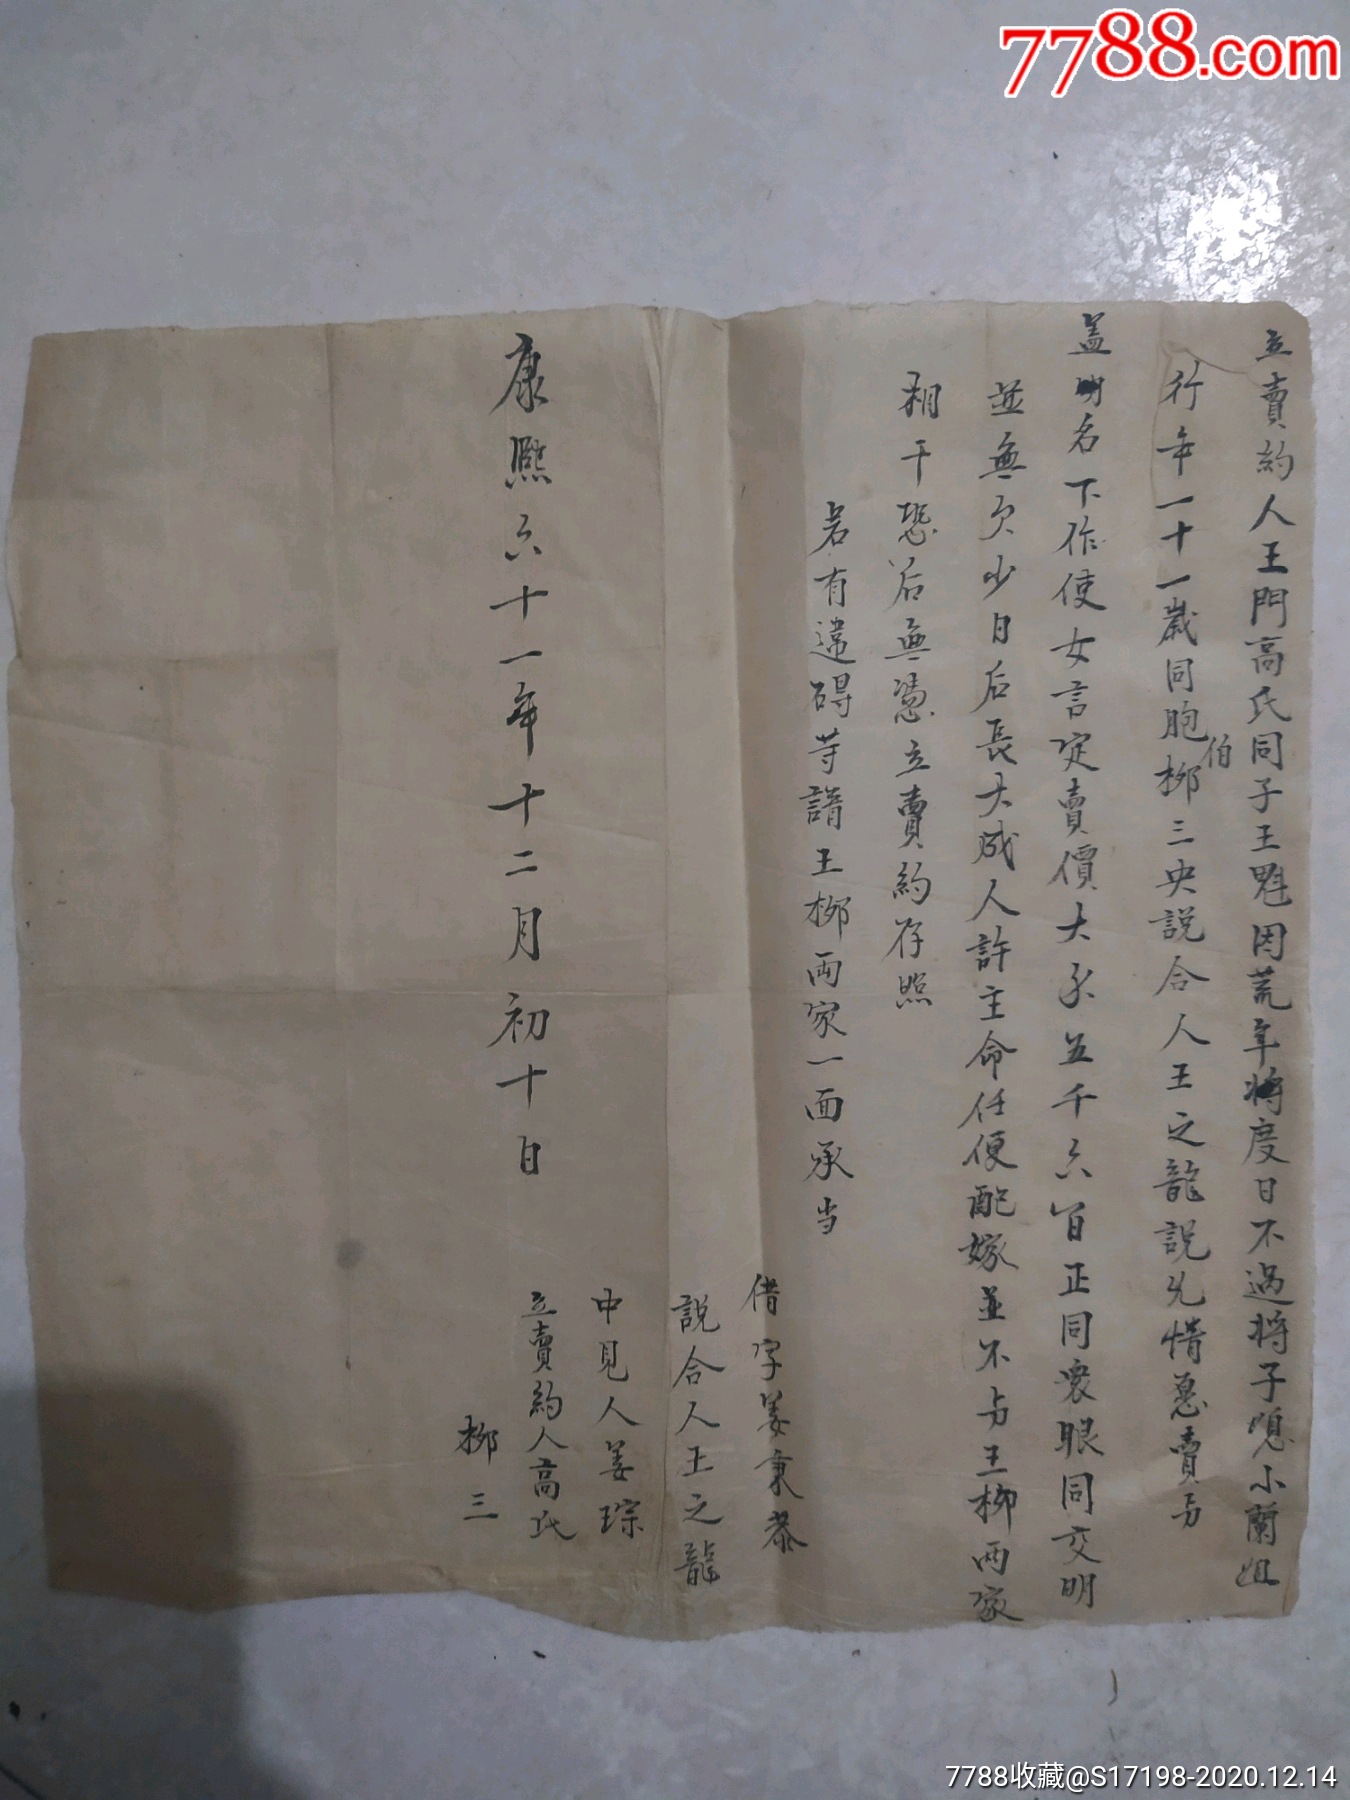 7788.com
立賣約人王門高氏同子王魁因荒年將度日不過將子媳小蘭姐
行年一十一歲同胞伯柳三央說合人王之龍說允情愿賣与
盖明名下作使女言定賣價大不五千六百正同衆眼同交明
並無欠少日后長大成人許主命任便配嫁並不与王柳两家
相干恐后無憑立賣約存照
若有違碍等諸王柳两家一面承当
借字姜秉泰
說合人王之龍
中見人姜琮
立賣約人高氏
柳三
康熙六十一年十二月初十日
7788收藏@S17198-2020.12.14